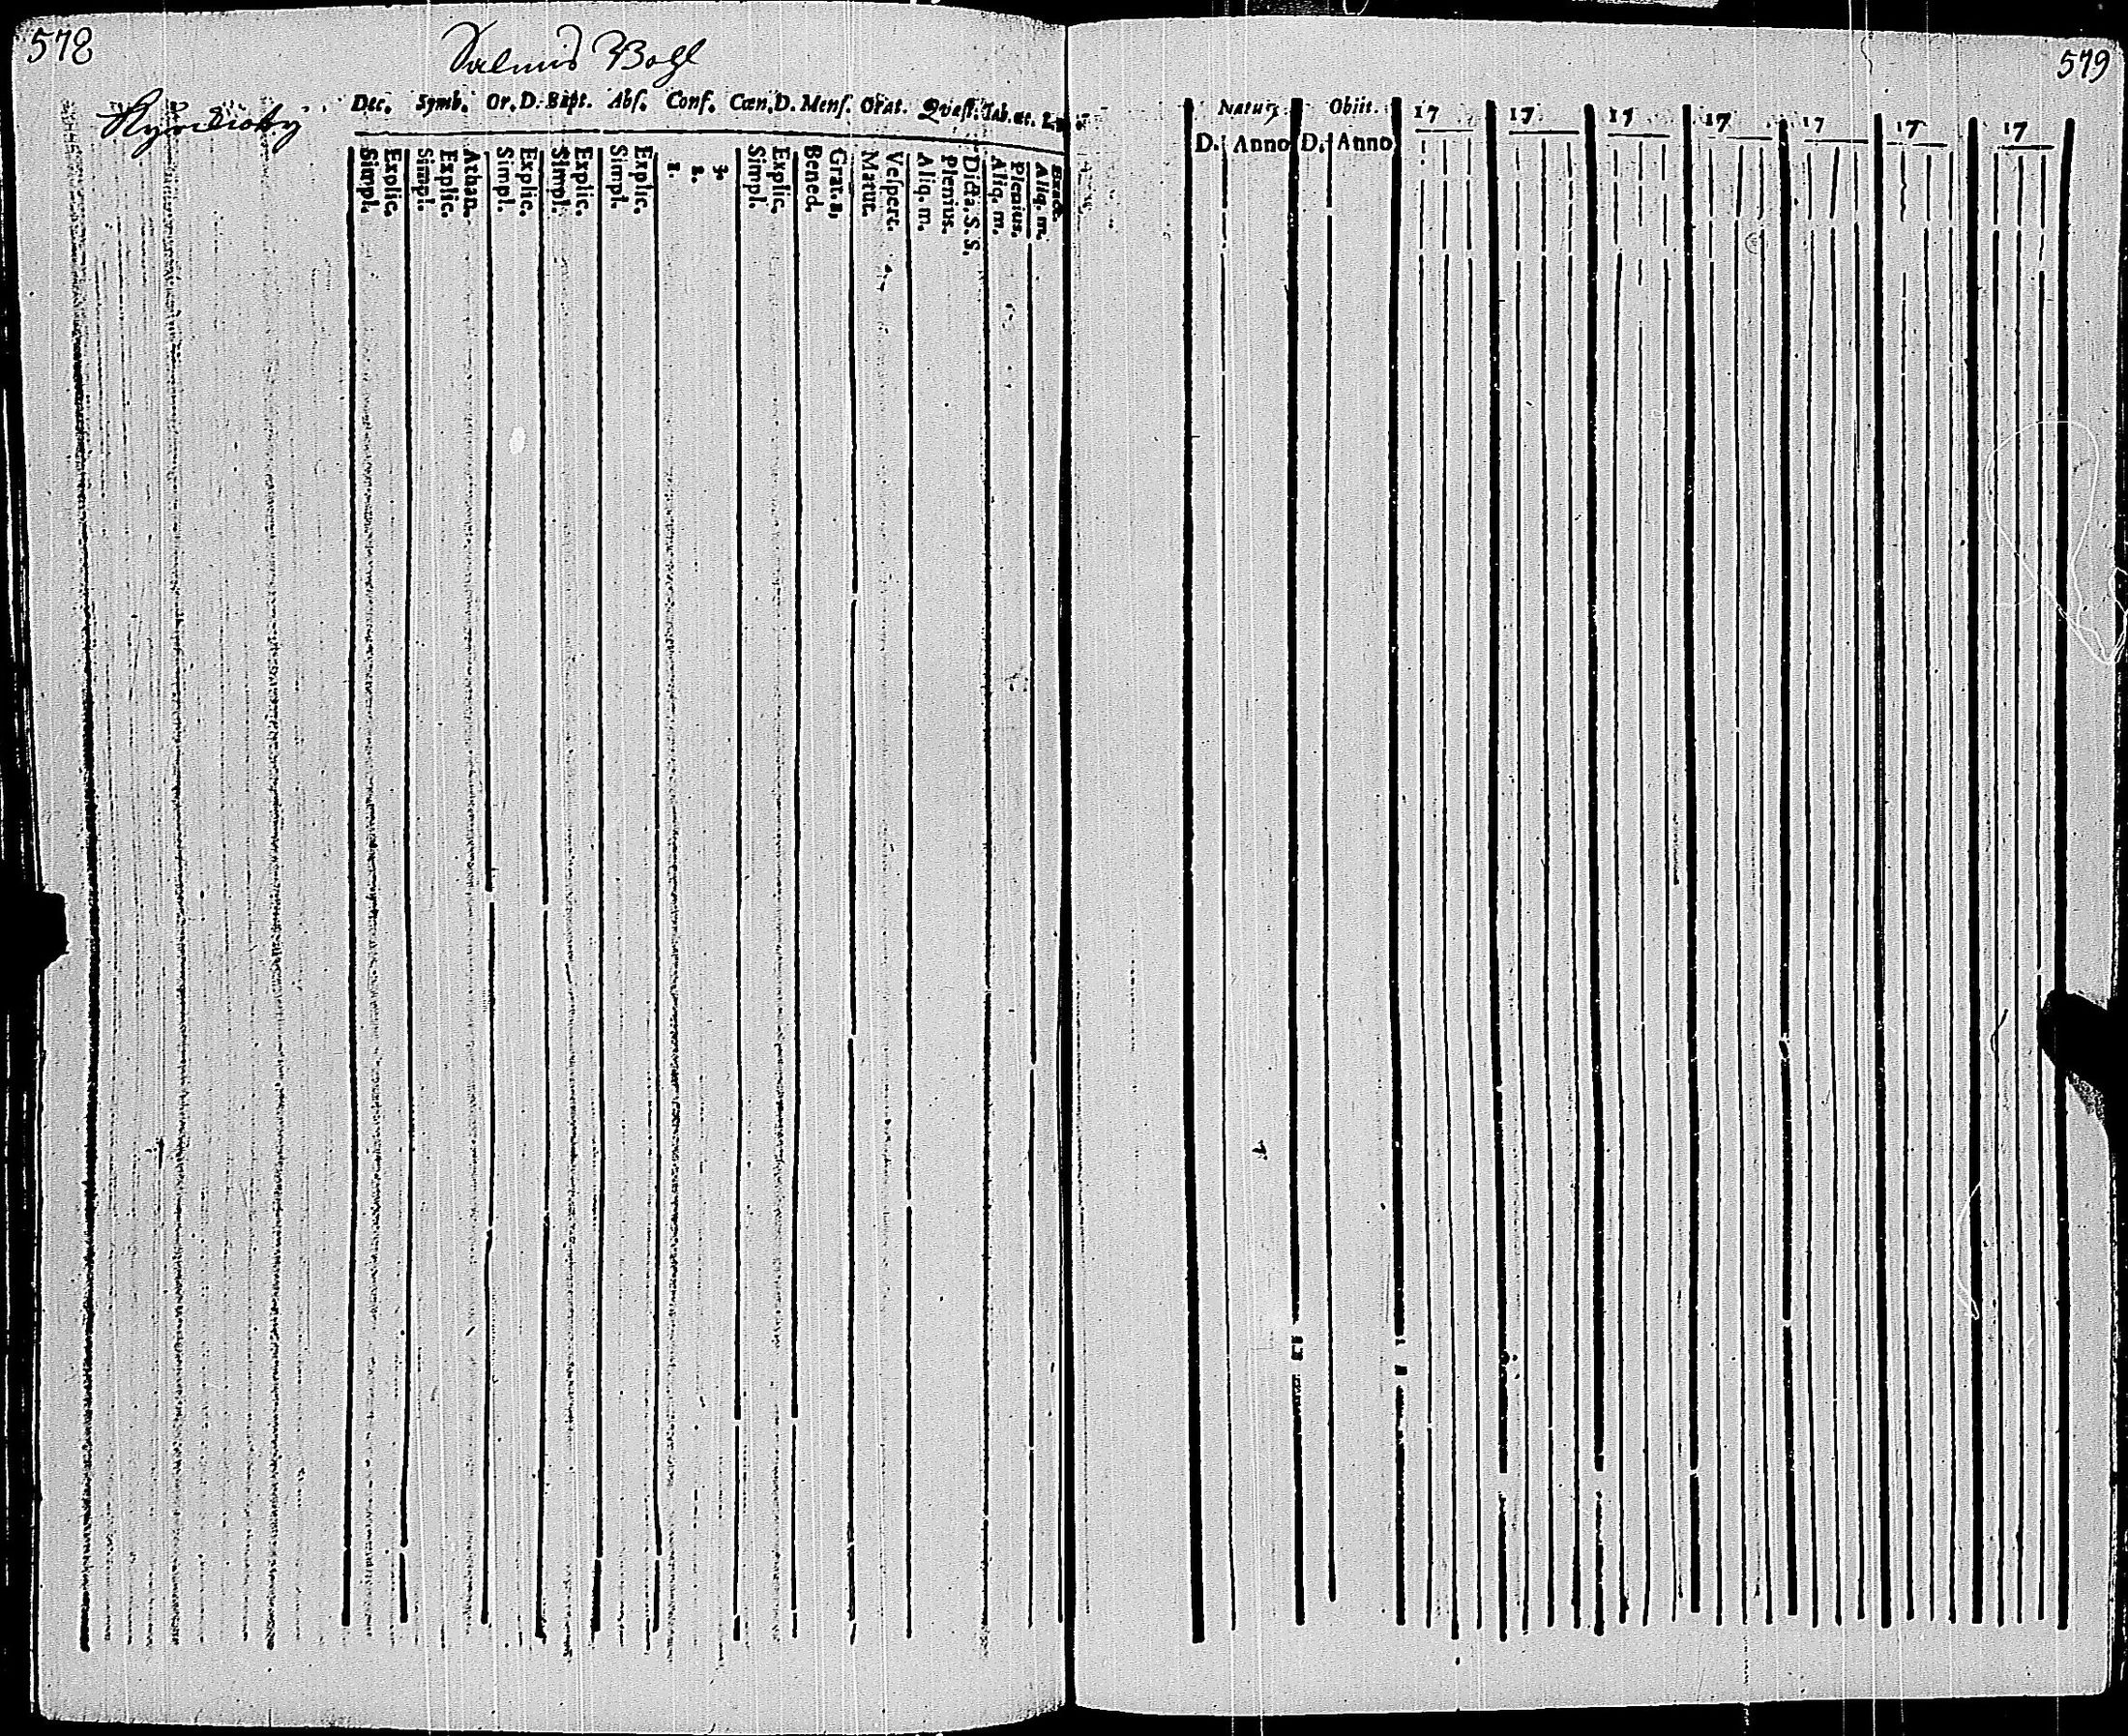 578
Salmis Bohl
Dec. Symb. Or. D. Bapt. Abſ. Conf. Cœn. D. Menſ. Orat. Quæſt. Tab. œc.
Simpl.
Explic.
Simpl.
Explic.
Athan.
Simpl.
Explic.
Simpl.
Explic.
Simpl.
Explic.
1.
2.
3.
Simpl.
Explic.
Bened.
Grat. a.
Matut.
Veſpert.
Aliq. m.
Plenius.
Dicta. S. S.
Aliq. m.
Plenius.
Aliq. m.
579
Natus Obiit. 17 17 17 17 17 17 17
D. Anno D. Anno